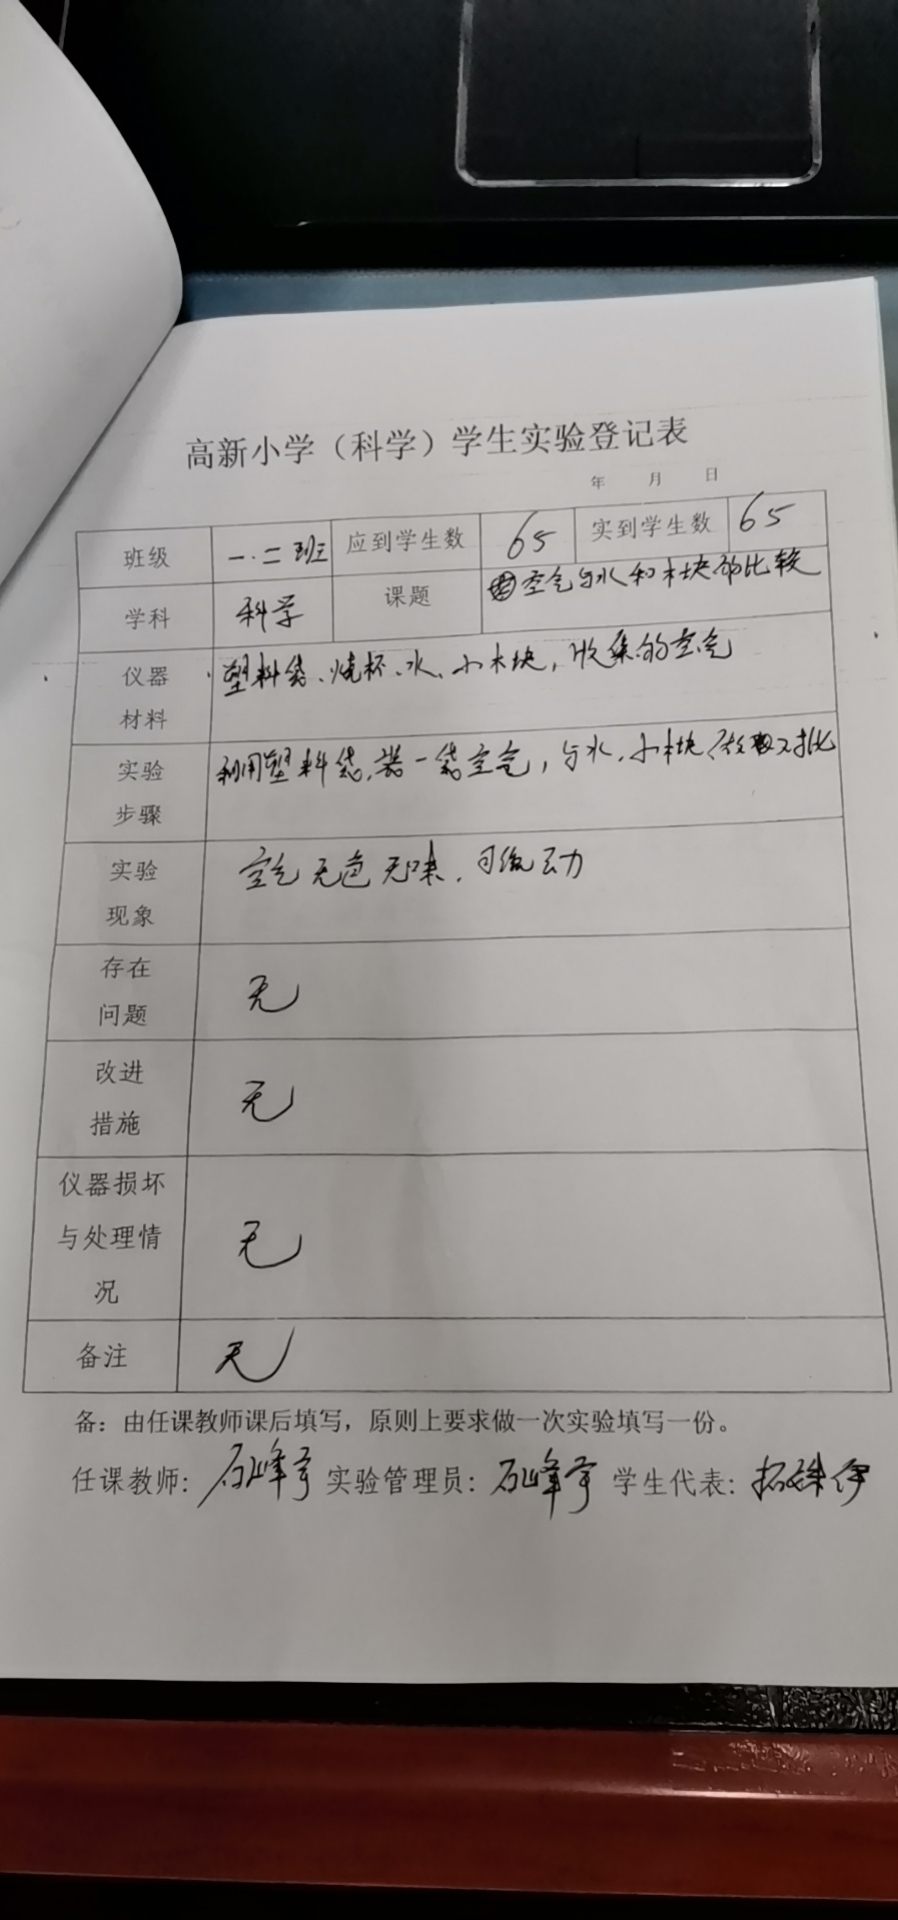 高新小学（科学）学生实验登记表
年 月 日
班级 一.二班 应到学生数 65 实到学生数 65
学科 科学 课题 空气与水和木块的比较
仪器 塑料袋、烧杯、水、小木块，收集的空气
材料
实验 利用塑料袋，装一袋空气，与水，小木块做对比
步骤
实验 空气无色无味，可流动
现象
存在
问题 无
改进
措施 无
仪器损坏
与处理情 无
况
备注 无
备：由任课教师课后填写，原则上要求做一次实验填写一份。
任课教师： 实验管理员： 学生代表：